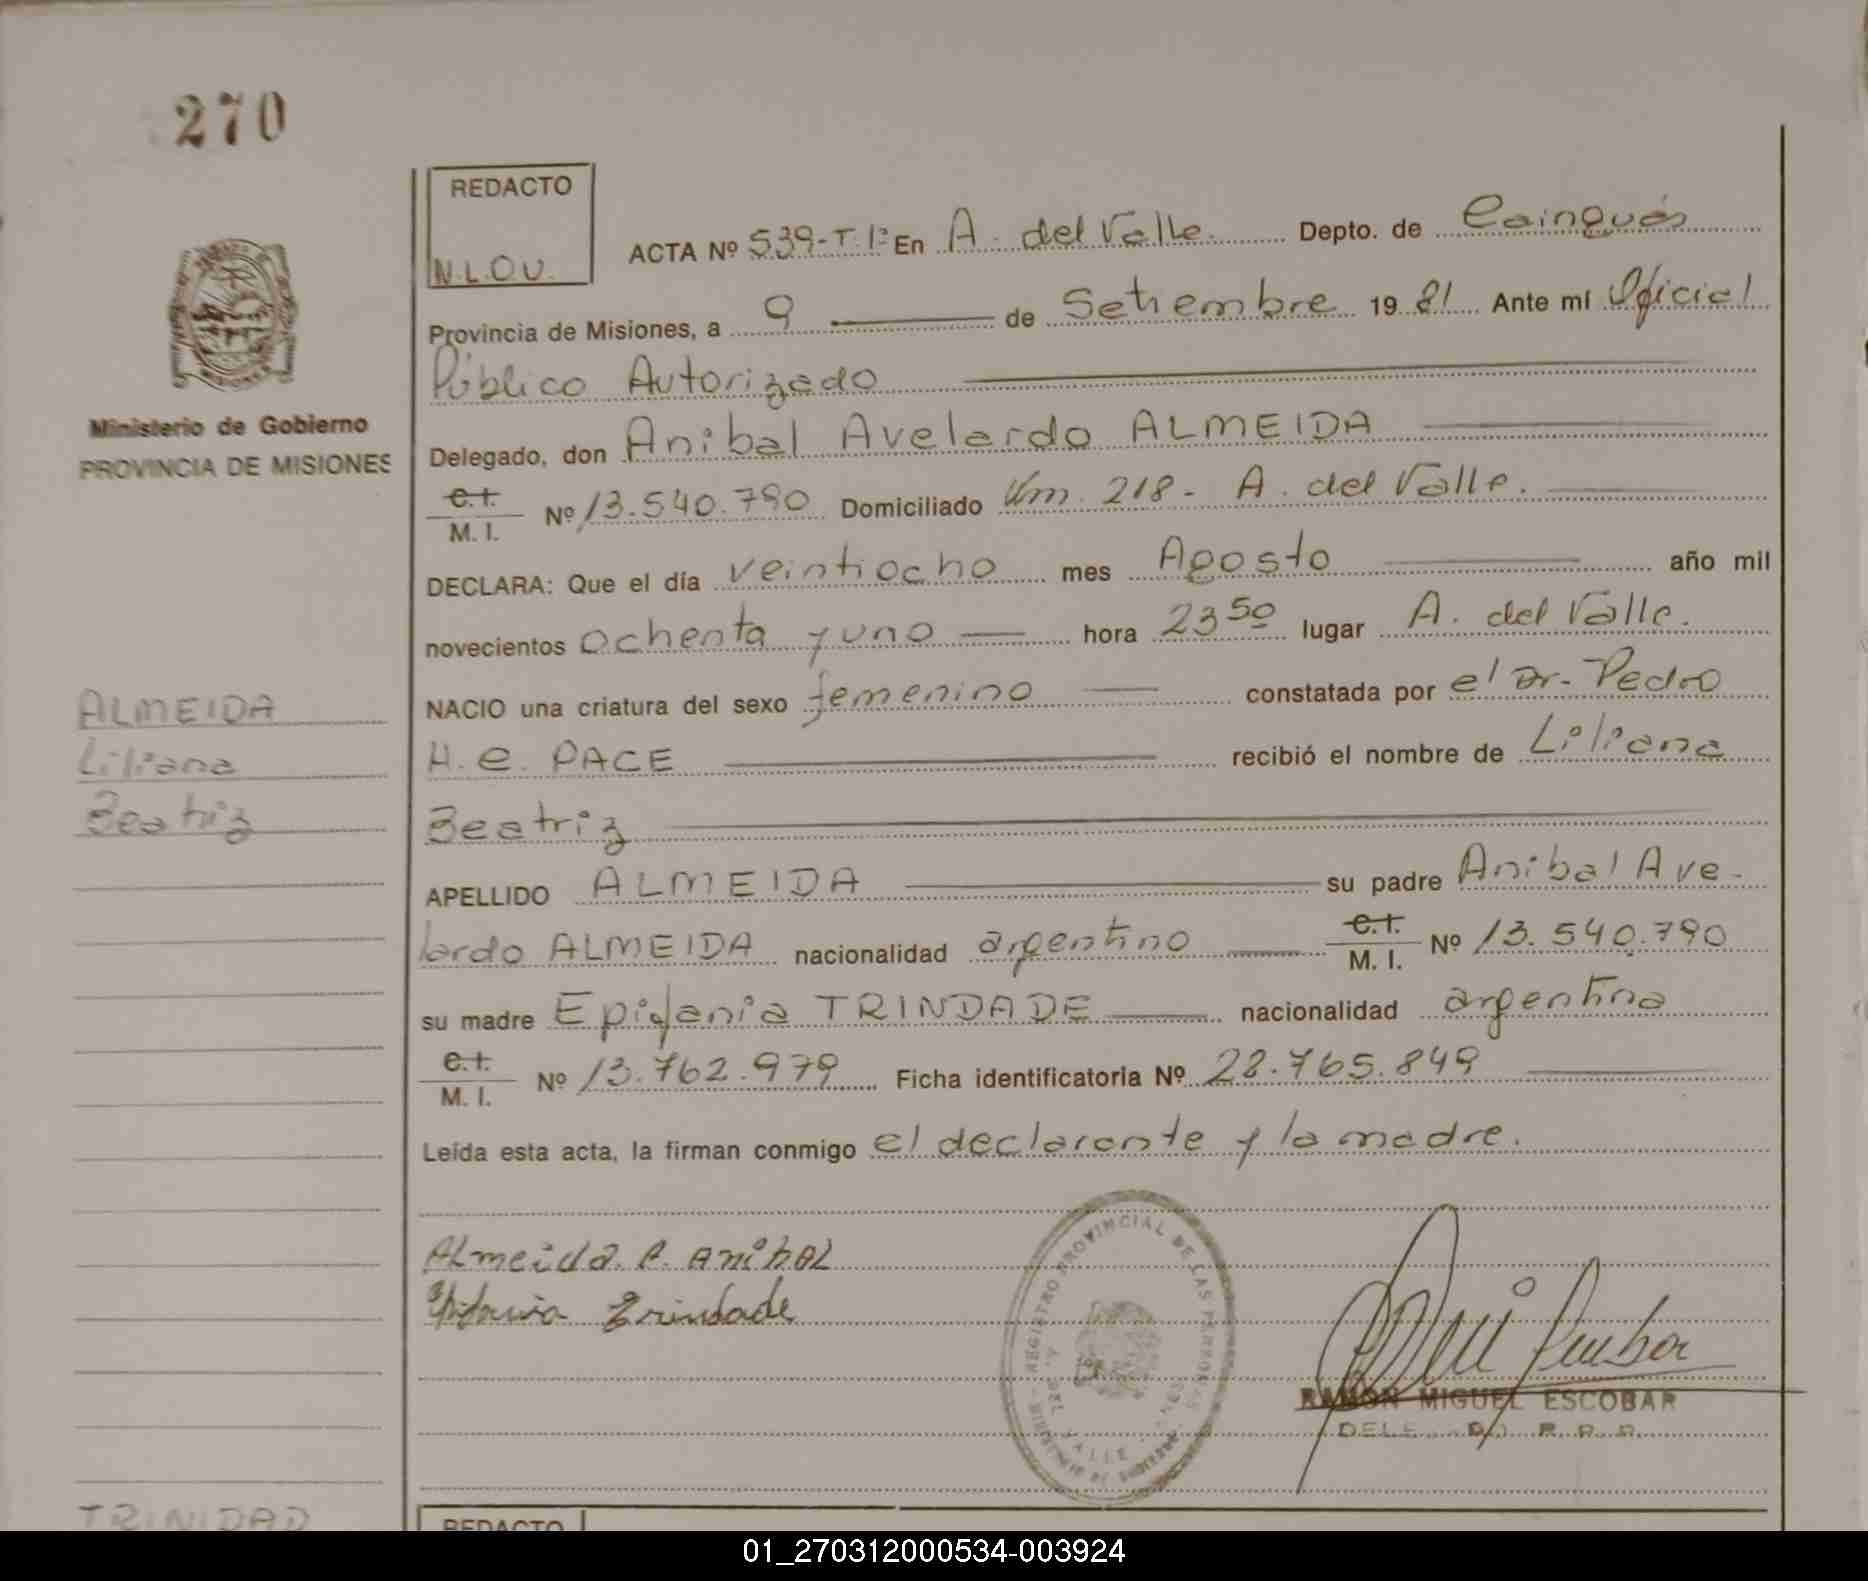 270
REDACTO
N.L.O.V.
ACTA Nº 539-T.1º En A. del Valle. Depto. de Cainguás
Provincia de Misiones, a 9 de Setiembre 1981 Ante mí Oficial
Público Autorizado
Delegado, don Anibal Avelardo ALMEIDA
C.I.
M. I. Nº 13.540.790 Domiciliado Km. 218 - A. del Valle.
DECLARA: Que el día veintiocho mes Agosto año mil
novecientos ochenta y uno hora 23 50 lugar A. del Valle.
NACIO una criatura del sexo femenino constatada por el Dr. Pedro
H. C. PACE recibió el nombre de Liliana
Beatriz
APELLIDO ALMEIDA su padre Anibal Ave-
lardo ALMEIDA nacionalidad argentino C.I.
M. I. Nº 13.540.790
su madre Epifania TRINDADE nacionalidad argentina
C.I.
M. I. Nº 13.762.979 Ficha identificatoria Nº 28.765.849
Leída esta acta, la firman conmigo el declarante y la madre.
Almeida A. Anibal
Epifania Trindade
REGISTRO PROVINCIAL DE LAS PERSONAS
A. DEL VALLE
MINISTERIO DE GOBIERNO
RAMON MIGUEL ESCOBAR
R.P.P.
Ministerio de Gobierno
PROVINCIA DE MISIONES
ALMEIDA
Liliana
Beatriz
TRINIDAD
REDACTO
01_270312000534-003924